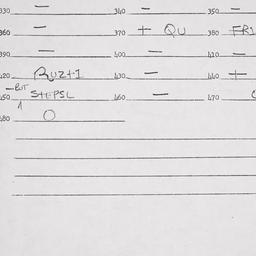 330 — 340 — 350 —
360 — 370 + QU 380 FRI
390 — 400 — 410 —
420 RUZTI 430 — 440 +
450 STEPSL 460 — 470
480 O